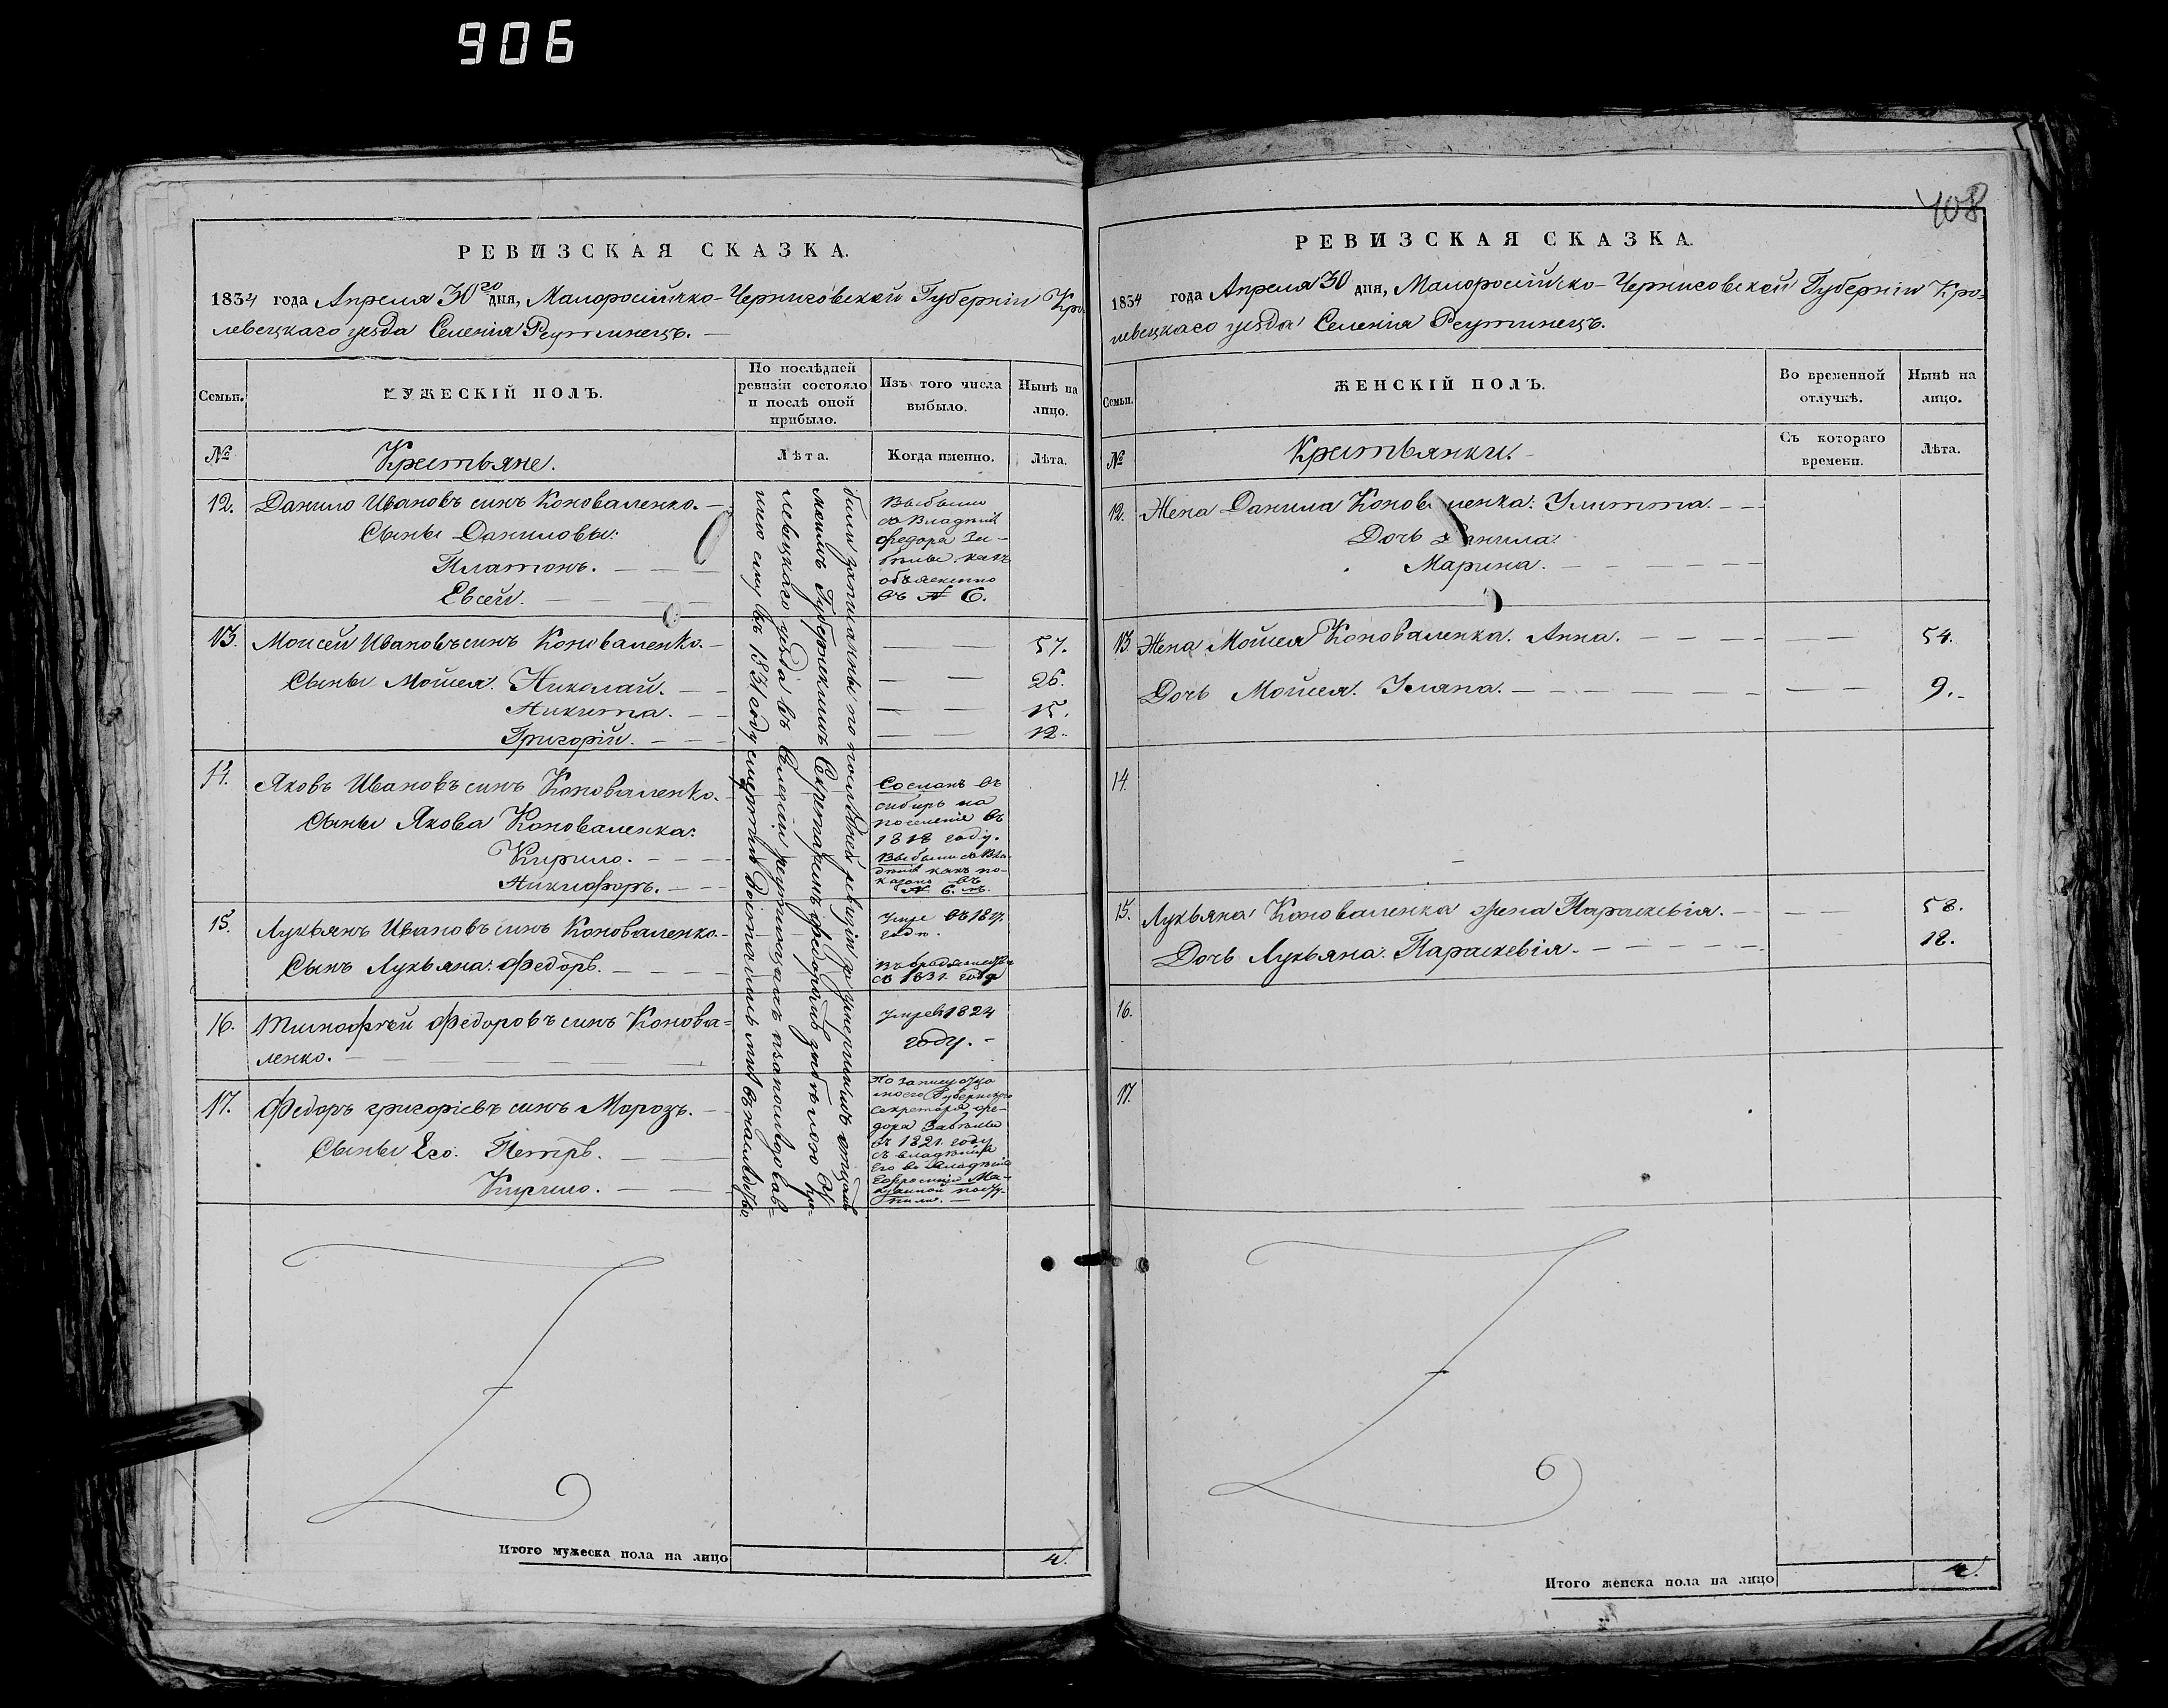 906
РЕВИЗСКАЯ СКАЗКА.
1834 года Апреля 30го дня, Малоросійско-Черниговской Губерніи Кро
левецкаго уезда Селенія Реутинецъ. —
Семьи.
МУЖЕСКІЙ ПОЛЪ.
По послѣдней
ревизіи состояло
и послѣ оной
прибыло.
Изъ того числа
выбыло.
Нынѣ на
лицо.
№
Крестьяне.
Лѣта.
Когда именно.
Лѣта.
12. Данило Ивановъ синъ Коноваленко. —
Сыны Даниловы:
Платонъ. — — —
Евсей. — — —
Выбыли
во Владѣніе
Федора
какъ
объяснено
въ № 6.
13. Моисей Ивановъ синъ Коноваленко. — — — 57.
Сыны Мойсея. Николай. — — — — 26.
Никита. — — — — 15.
Григорій. — — — — 12.
14. Яковъ Ивановъ синъ Коноваленко.
Сыны Якова Коноваленка:
Кирило. — — —
Никифоръ. — —
Сосланъ въ
сибирь на
поселеніе въ
1818 году.
Выбыли во Вла-
дѣніе какъ по-
казано въ
№ 6.
15. Лукьянъ Ивановъ синъ Коноваленко. —
Сынъ Лукьяна: Федоръ. — — —
Умре въ
году.
Въ бродяжествѣ
съ 1831. года
16. Тимофтей Федоровъ синъ Конова=
ленко. — — —
Умре в 1824
году. —
17. Федоръ григоріевъ синъ Морозъ. —
Сыны Его: Петръ. — —
Кирило. — —
По запису отца
моего Губернскаго
Секретаря Фе-
дора
въ 1821. году
съ владѣнія
Его во владѣніе
Ефросиніи
посту-
пили. —
были записанны по последней ревизіи за умершимъ отцемъ
моимъ Губернскимъ Секретаремъ Федоромъ
левецкаго уезда въ Селеніи Реутинцахъ
ему въ 1831 году смерти достались мнѣ въ наследство.
Итого мужеска пола на лицо
4.
408
РЕВИЗСКАЯ СКАЗКА.
1834 года Апреля 30 дня, Малоросійско-Черниговской Губерніи Кро=
левецкаго уезда Селенія Реутинецъ.
Семьи.
ЖЕНСКІЙ ПОЛЪ.
Во временной
отлучкѣ.
Нынѣ на
лицо.
№
Крестьянки. —
Съ котораго
времени.
Лѣта.
12. Жена Данила Коновленка: Улитта. — — —
Дочь Данила:
Марина. — — — — — —
13. Жена Мойсея Коноваленка. Анна. — — — — — — 54.
Дочь Мойсея. Уляна. — — — — — — — — 9. —
14.
—
15. Лукьяна Коноваленка жена Параскевія. — — — 58.
Дочь Лукьяна: Параскевія. — — — — — 18.
16.
17.
Итого женска пола на лицо
4.